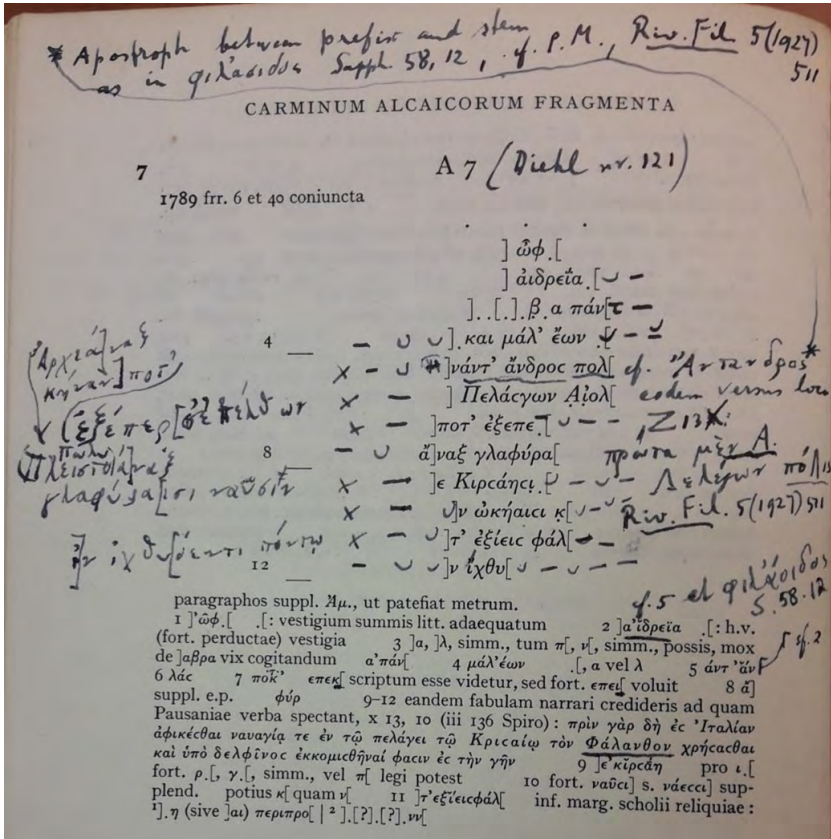 * Apostroph between prefix and stem
as in φιλάοιδος Suppl. 58, 12, cf. P. M., Riv. Fil. 5 (1927)
511
CARMINUM ALCAICORUM FRAGMENTA
7 A 7 (Diehl nr. 121)
1789 frr. 6 et 40 coniuncta
] ὦφ.[
] ἀιδρεΐα.[
]..[.].β.α πάν[τ
4 ].και μάλ’ ἔων .[
]νάντ’ ἄνδρος πολ[ cf. Ἄντανδρος*
] Πελάσγων Αἰολ[ eodem versus loco
]ποτ’ ἐξεπε.[ , Z 13
8 ἄ]ναξ γλαφύρα[ πρώτα μὲν Ἀ.
]ε Κιρσάηςι.[ Λελέγων πόλις
]ν ὠκήαιςι κ[ Riv. Fil. 5 (1927) 511
]τ’ ἐξίεις φάλ[
12 ]ν ἴχθυ[
γλαφύρα[ισι ναῦσιν
]ν ἰχθυ[όεντι πόντῳ
cf. 5 et φιλάοιδος
S. 58.12
paragraphos suppl. Ἁμ., ut patefiat metrum.
1 ]’ὦφ.[ .[: vestigium summis litt. adaequatum 2 ]α’ϊδρεϊα .[: h.v.
(fort. perductae) vestigia 3 ]α, ]λ, simm., tum π[, ν[, simm., possis, mox
de ]αβρα vix cogitandum α’πάν[ 4 μάλ’έων .[, α vel λ 5 άντ’ἄν
6 λάς 7 ποκ̓ επεκ[ scriptum esse videtur, sed fort. επει[ voluit 8 ἄ]
suppl. e.p. φύρ 9–12 eandem fabulam narrari credideris ad quam
Pausaniae verba spectant, x 13, 10 (iii 136 Spiro): πρὶν γὰρ δὴ ἐς Ἰταλίαν
ἀφικέσθαι ναυαγίᾳ τε ἐν τῷ πελάγει τῷ Κρισαίῳ τὸν Φάλανθον χρήσασθαι
καὶ ὑπὸ δελφῖνος ἐκκομισθῆναί φασιν ἐς τὴν γῆν 9 ]ε’κῖρσάη pro ι.[
fort. ρ.[, γ.[, simm., vel π[ legi potest 10 fort. ναῦσι] s. νάεσσι] sup-
plend. potius κ[ quam ν[ 11 ]τ’εξίειςφάλ[ inf. marg. scholii reliquiae:
¹].η (sive ]αι) περιπρο[ | ² ].[?].[?].νν[